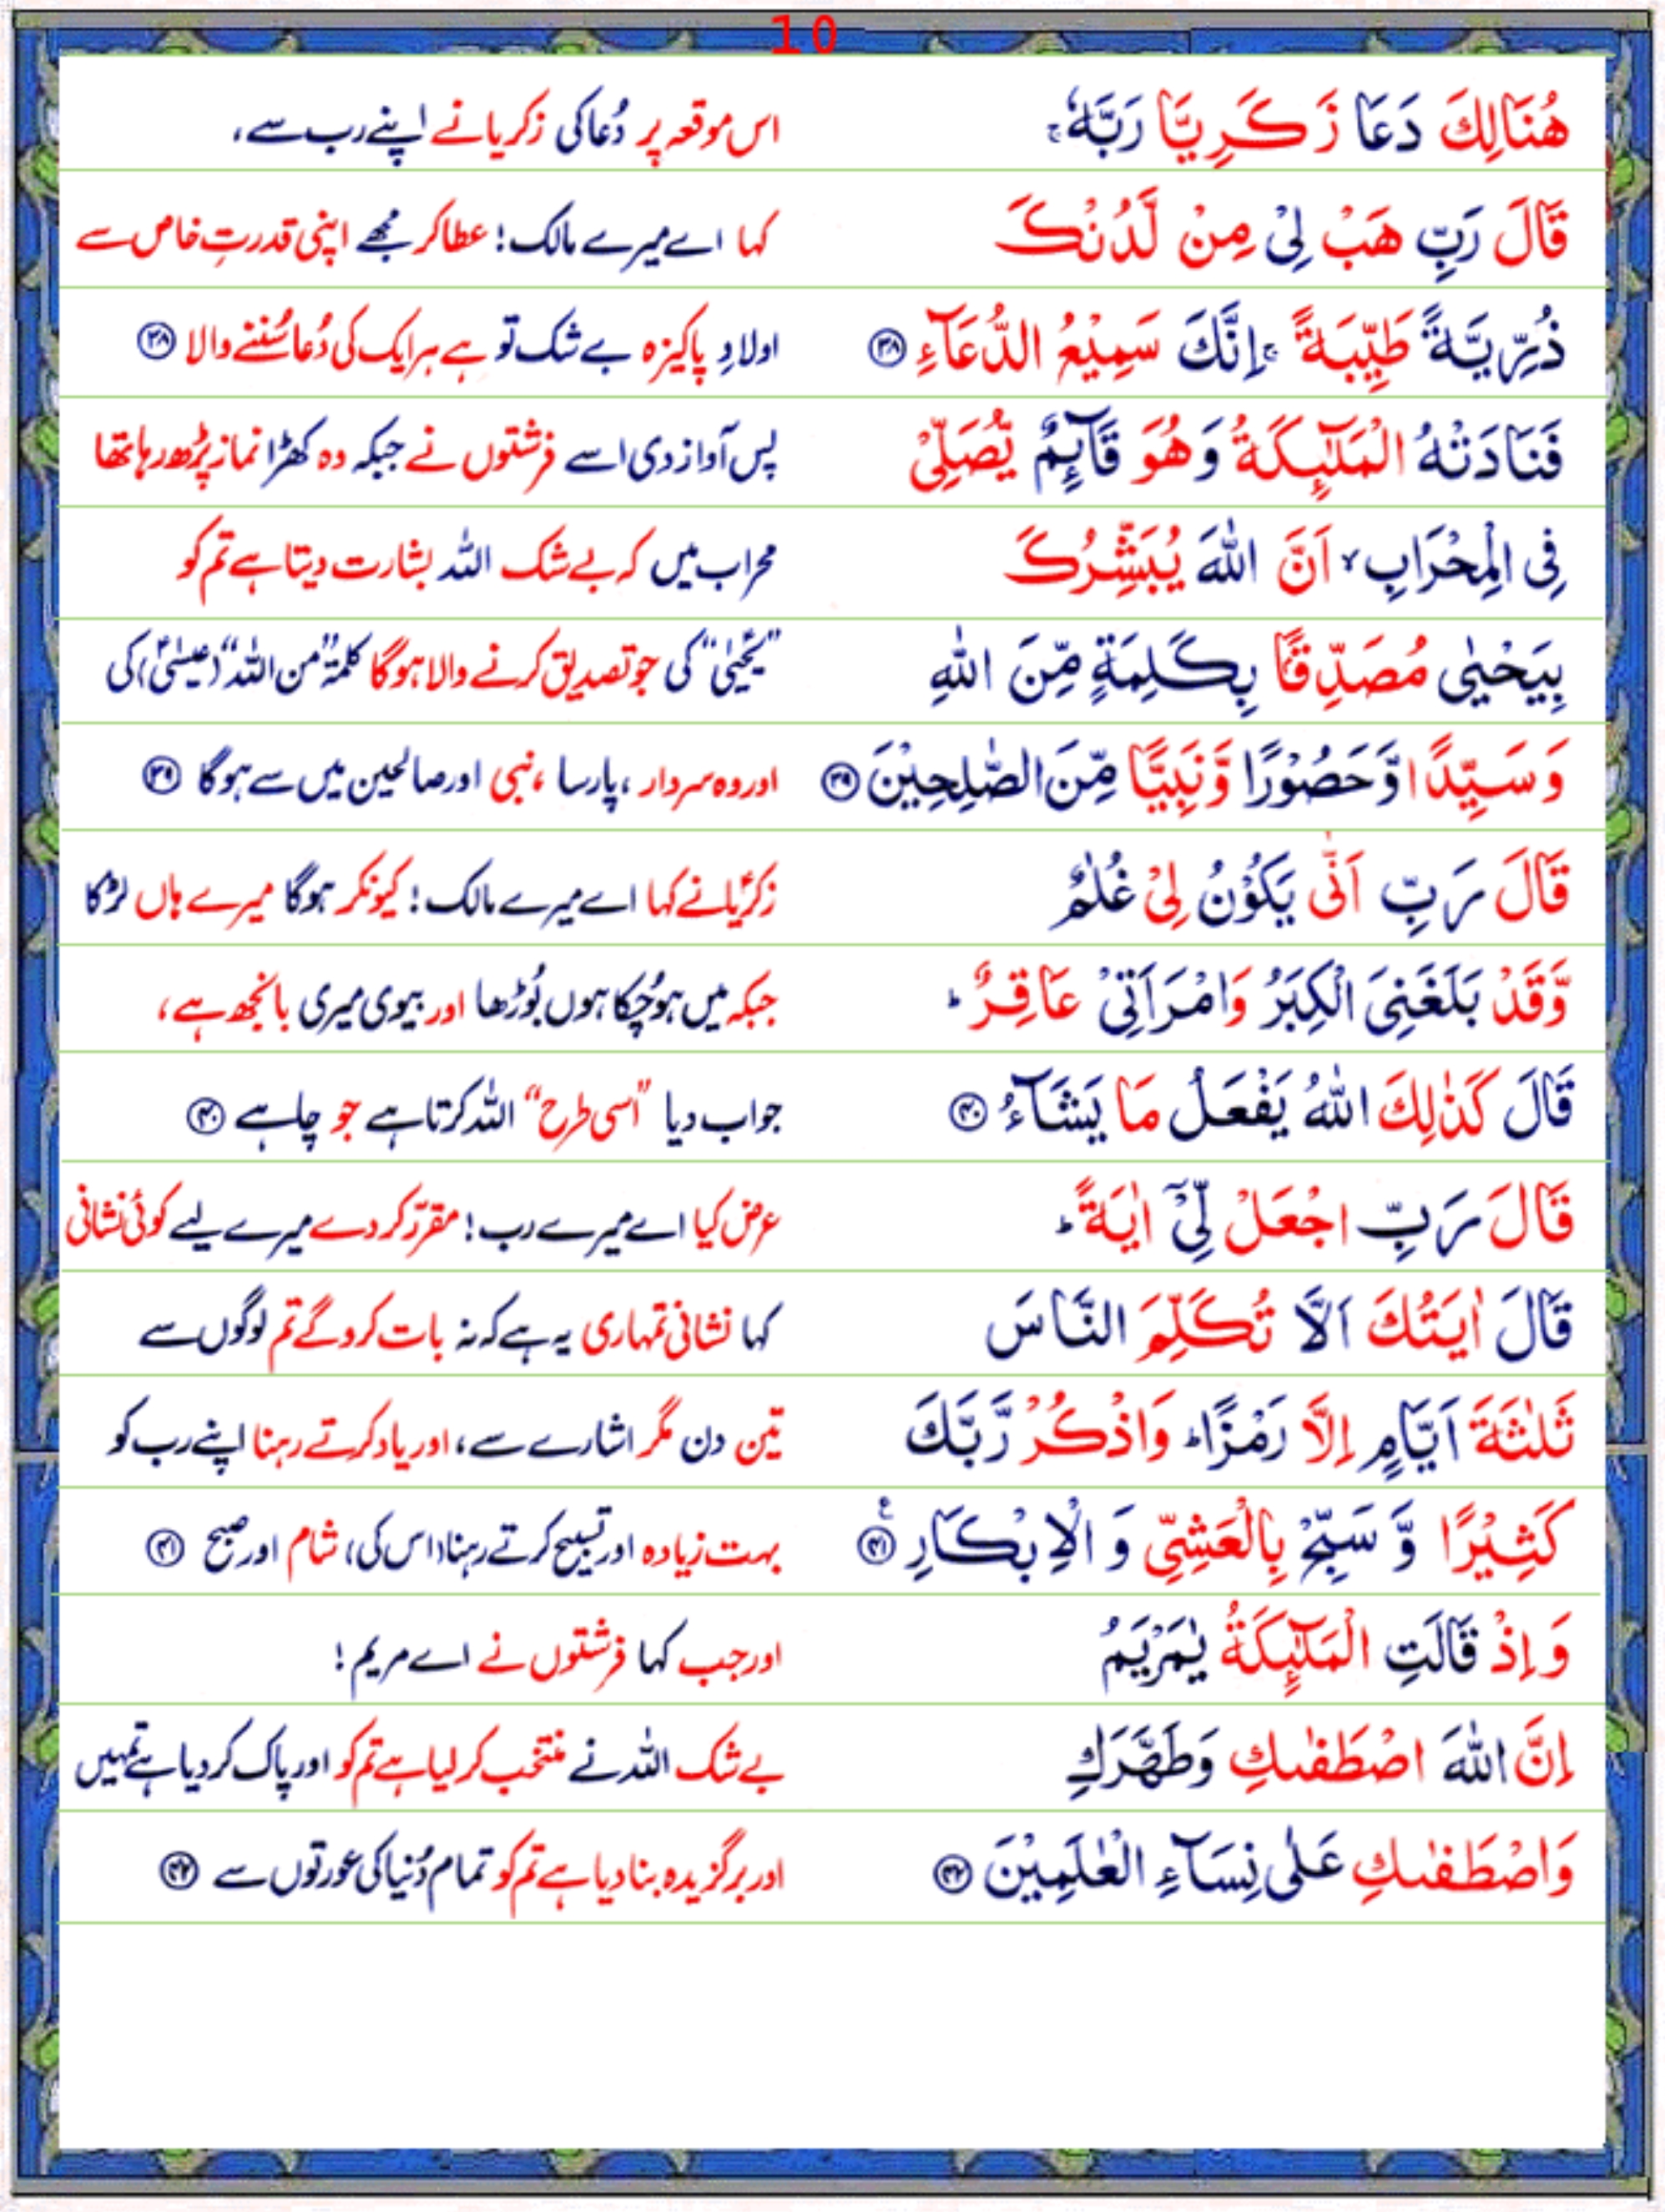 10
هُنَالِكَ دَعَا زَكَرِيَّا رَبَّهٗ ۚ اس موقعہ پر دُعا کی زکریا نے اپنے رب سے،
قَالَ رَبِّ هَبْ لِیْ مِنْ لَّدُنْكَ کہا اے میرے مالک! عطا کر مجھے اپنی قدرتِ خاص سے
ذُرِّیَّةً طَیِّبَةً ۚ اِنَّكَ سَمِیْعُ الدُّعَآءِ ﴿۳۸﴾ اولادِ پاکیزہ بے شک تو ہے ہر ایک کی دُعا سُننے والا ﴿۳۸﴾
فَنَادَتْهُ الْمَلٰٓئِكَةُ وَهُوَ قَآئِمٌ یُّصَلِّیْ پس آواز دی اسے فرشتوں نے جبکہ وہ کھڑا نماز پڑھ رہا تھا
فِی الْمِحْرَابِ ۙ اَنَّ اللّٰهَ یُبَشِّرُكَ محراب میں کہ بے شک اللہ بشارت دیتا ہے تم کو
بِیَحْیٰی مُصَدِّقًۢا بِكَلِمَةٍ مِّنَ اللّٰهِ ”یحییٰؑ“ کی جو تصدیق کرنے والا ہوگا کلمۃٌ من اللہ“ (عیسیٰؑ) کی
وَسَیِّدًا وَّحَصُوْرًا وَّنَبِیًّا مِّنَ الصّٰلِحِیْنَ ﴿۳۹﴾ اور وہ سردار، پارسا، نبی اور صالحین میں سے ہوگا ﴿۳۹﴾
قَالَ رَبِّ اَنّٰی یَكُوْنُ لِیْ غُلٰمٌ زکریاؑ نے کہا اے میرے مالک! کیونکر ہوگا میرے ہاں لڑکا
وَّقَدْ بَلَغَنِیَ الْكِبَرُ وَامْرَاَتِیْ عَاقِرٌ ؕ جبکہ میں ہو چُکا ہوں بُوڑھا اور بیوی میری بانجھ ہے،
قَالَ كَذٰلِكَ اللّٰهُ یَفْعَلُ مَا یَشَآءُ ﴿۴۰﴾ جواب دیا ”اسی طرح“ اللہ کرتا ہے جو چاہے ﴿۴۰﴾
قَالَ رَبِّ اجْعَلْ لِّیْۤ اٰیَةً ؕ عرض کیا اے میرے رب! مقرّر کر دے میرے لیے کوئی نشانی
قَالَ اٰیَتُكَ اَلَّا تُكَلِّمَ النَّاسَ کہا نشانی تمہاری یہ ہے کہ نہ بات کرو گے تم لوگوں سے
ثَلٰثَةَ اَیَّامٍ اِلَّا رَمْزًا ؕ وَاذْكُرْ رَّبَّكَ تین دن مگر اشارے سے، اور یاد کرتے رہنا اپنے رب کو
كَثِیْرًا وَّ سَبِّحْ بِالْعَشِیِّ وَ الْاِبْكَارِ ﴿۴۱﴾ ع بہت زیادہ اور تسبیح کرتے رہنا (اس کی) شام اور صبح ﴿۴۱﴾
وَاِذْ قَالَتِ الْمَلٰٓئِكَةُ یٰمَرْیَمُ اور جب کہا فرشتوں نے اے مریم!
اِنَّ اللّٰهَ اصْطَفٰىكِ وَطَهَّرَكِ بے شک اللہ نے منتخب کر لیا ہے تم کو اور پاک کر دیا ہے تمہیں
وَاصْطَفٰىكِ عَلٰی نِسَآءِ الْعٰلَمِیْنَ ﴿۴۲﴾ اور برگزیدہ بنا دیا ہے تم کو تمام دُنیا کی عورتوں سے ﴿۴۲﴾